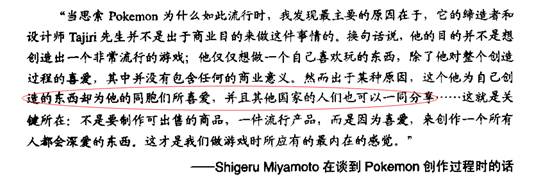 “当思索 Pokemon 为什么如此流行时，我发现最主要的原因在于，它的缔造者和
设计师 Tajiri 先生并不是出于商业目的来做这件事情的。换句话说，他的目的并不是想
创造出一个非常流行的游戏；他仅仅想做一个自己喜欢玩的东西，除了他对整个创造
过程的喜爱，其中并没有包含任何的商业意义。然而出于某种原因，这个他为自己创
造的东西却为他的同胞们所喜爱，并且其他国家的人们也可以一同分享……这就是关
键所在：不是要制作可出售的商品，一件流行产品，而是因为喜爱，来创作一个所有
人都会深爱的东西。这才是我们做游戏时所应有的最内在的感觉。”
——Shigeru Miyamoto 在谈到 Pokemon 创作过程时的话